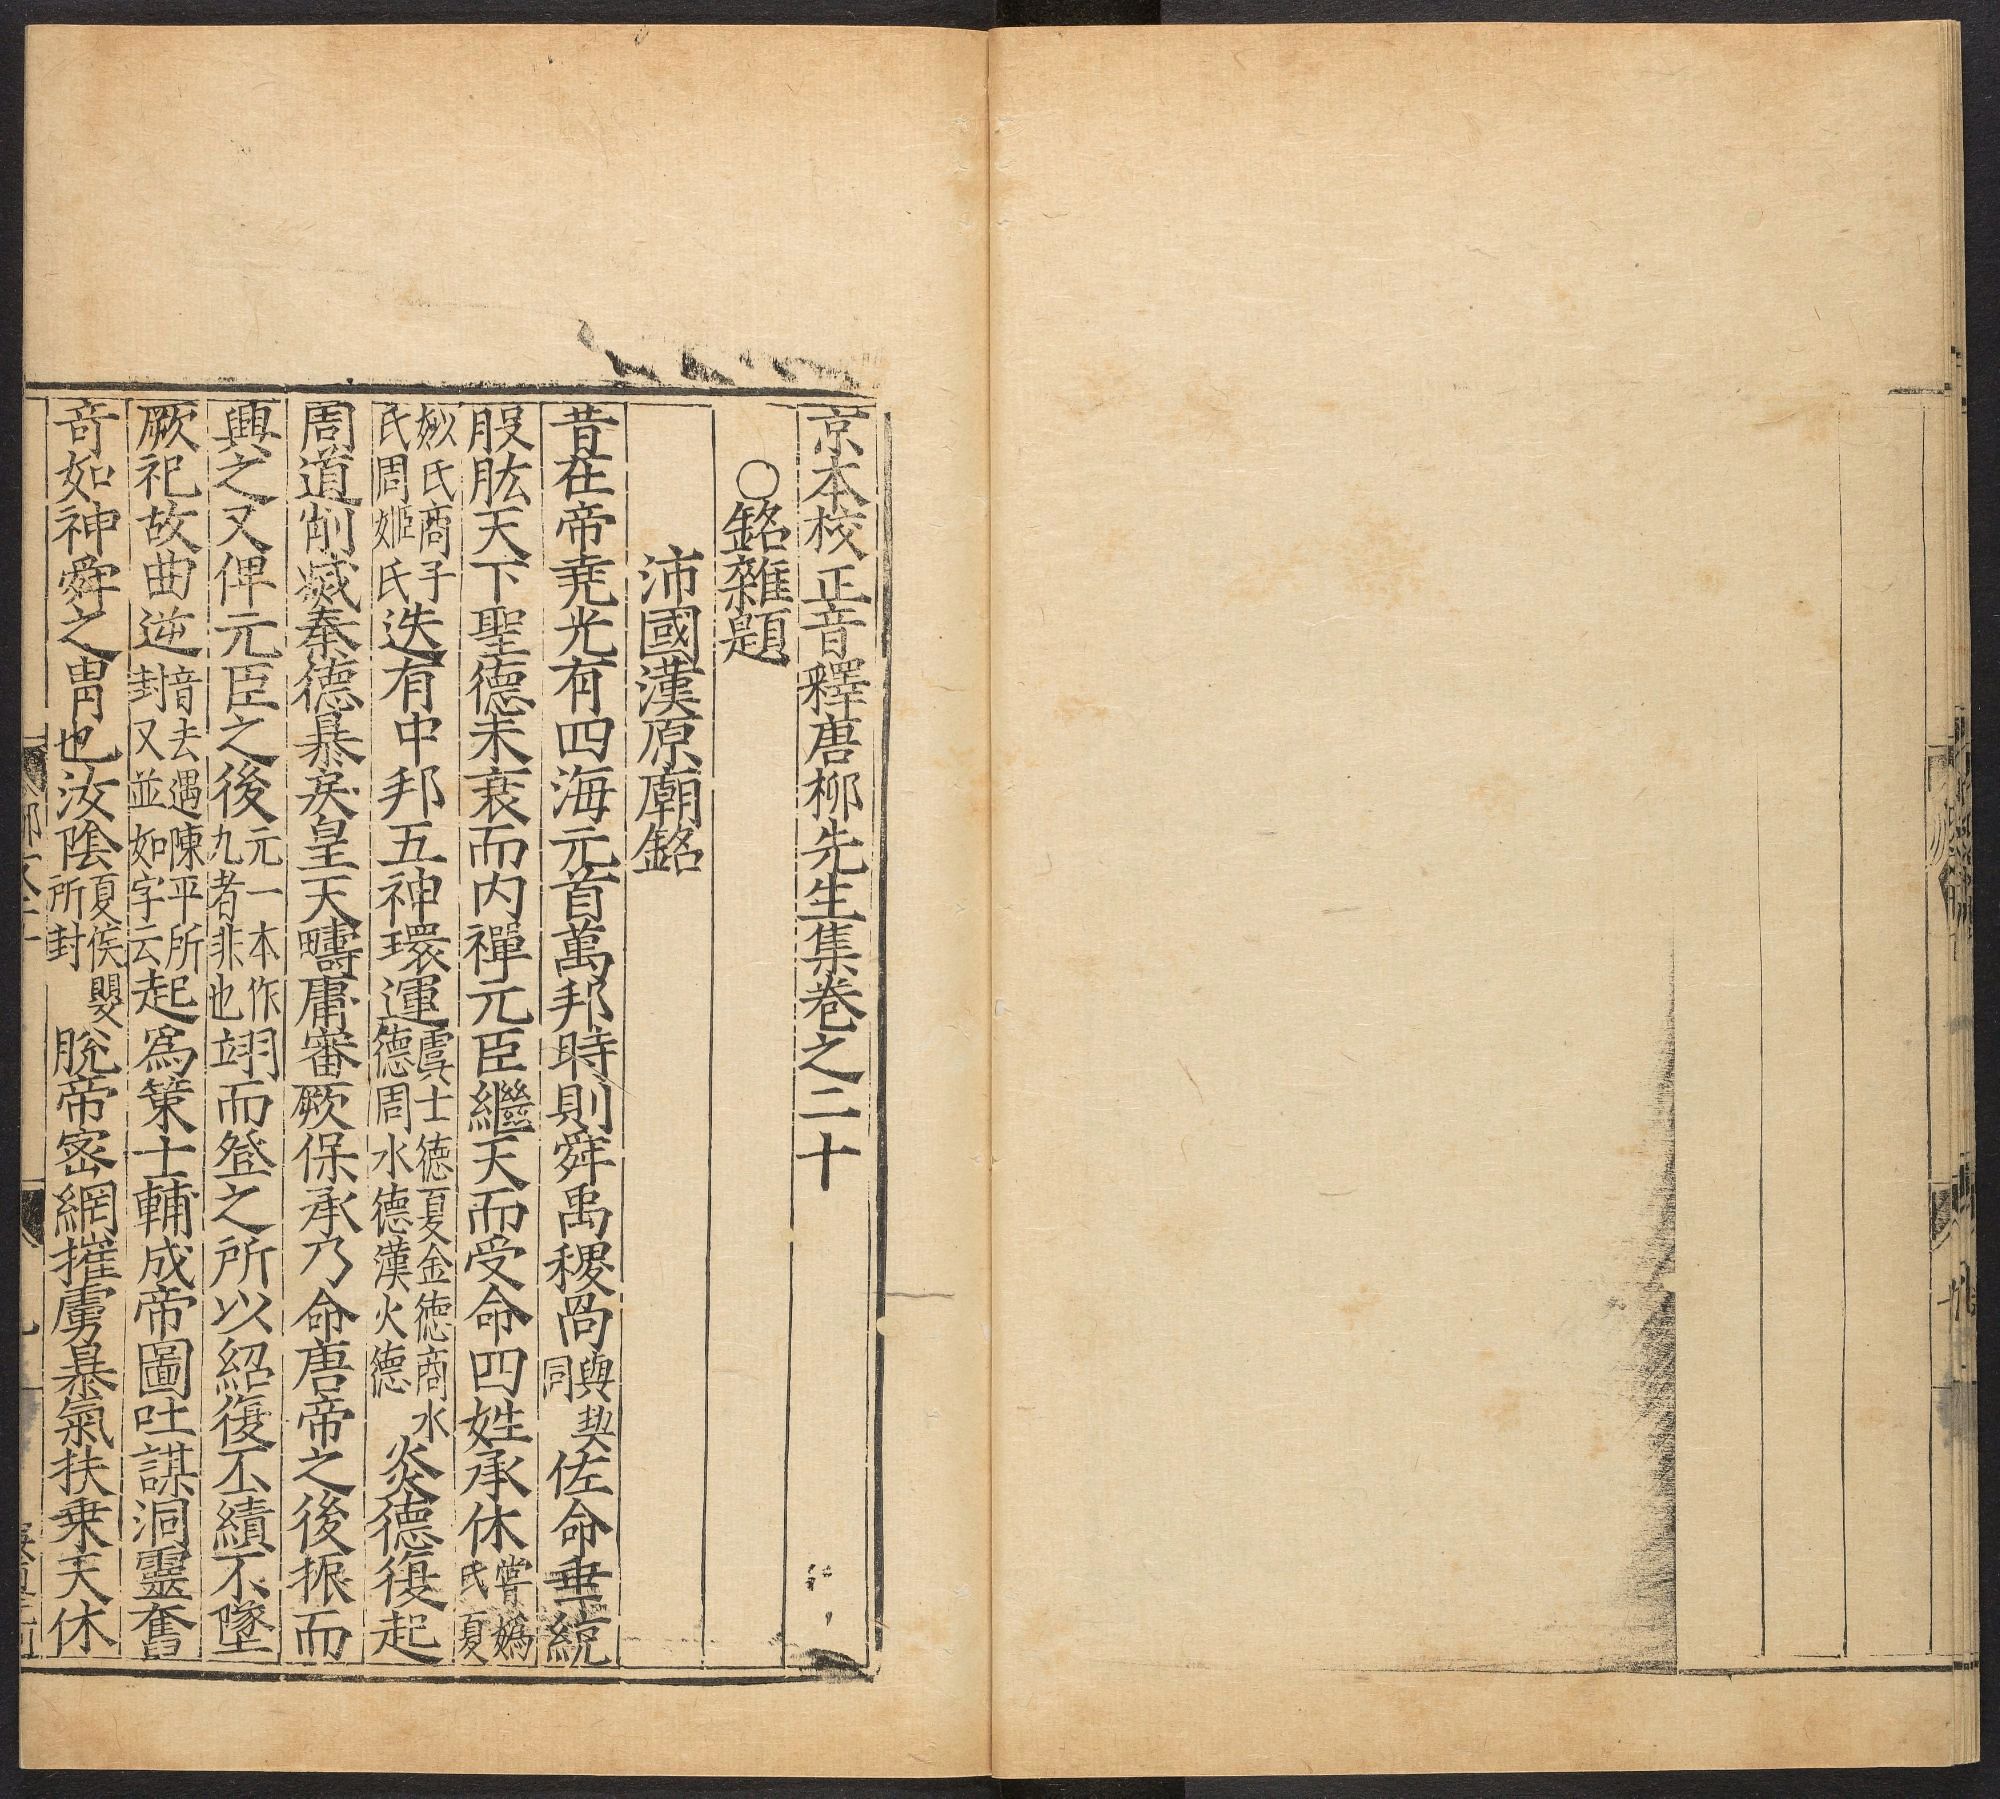 京本校正音釋唐柳先生集卷之二十
○銘雜題
沛國漢原廟銘
昔在帝堯光有四海元首萬邦時則舜禹稷卨與契同佐命垂統
股肱天下聖德未衰而内禪元臣繼天而受命四姓承休嘗嬀氏夏
姒氏商子氏周姬氏迭有中邦五神環運虞士德夏金德商水德周水德漢火德炎德復起
周道削滅秦德暴戾皇天疇庸審厥保承乃命唐帝之後振而
興之又俾元臣之後元一本作九者非也翊而登之所以紹復丕績不墜
厥祀故曲逆音去遇陳平所封又並如字云起爲策士輔成帝圖吐謀洞靈奮
竒如神舜之胄也汝陰夏侯嬰所封脫帝密網摧虜暴氣扶乗天休